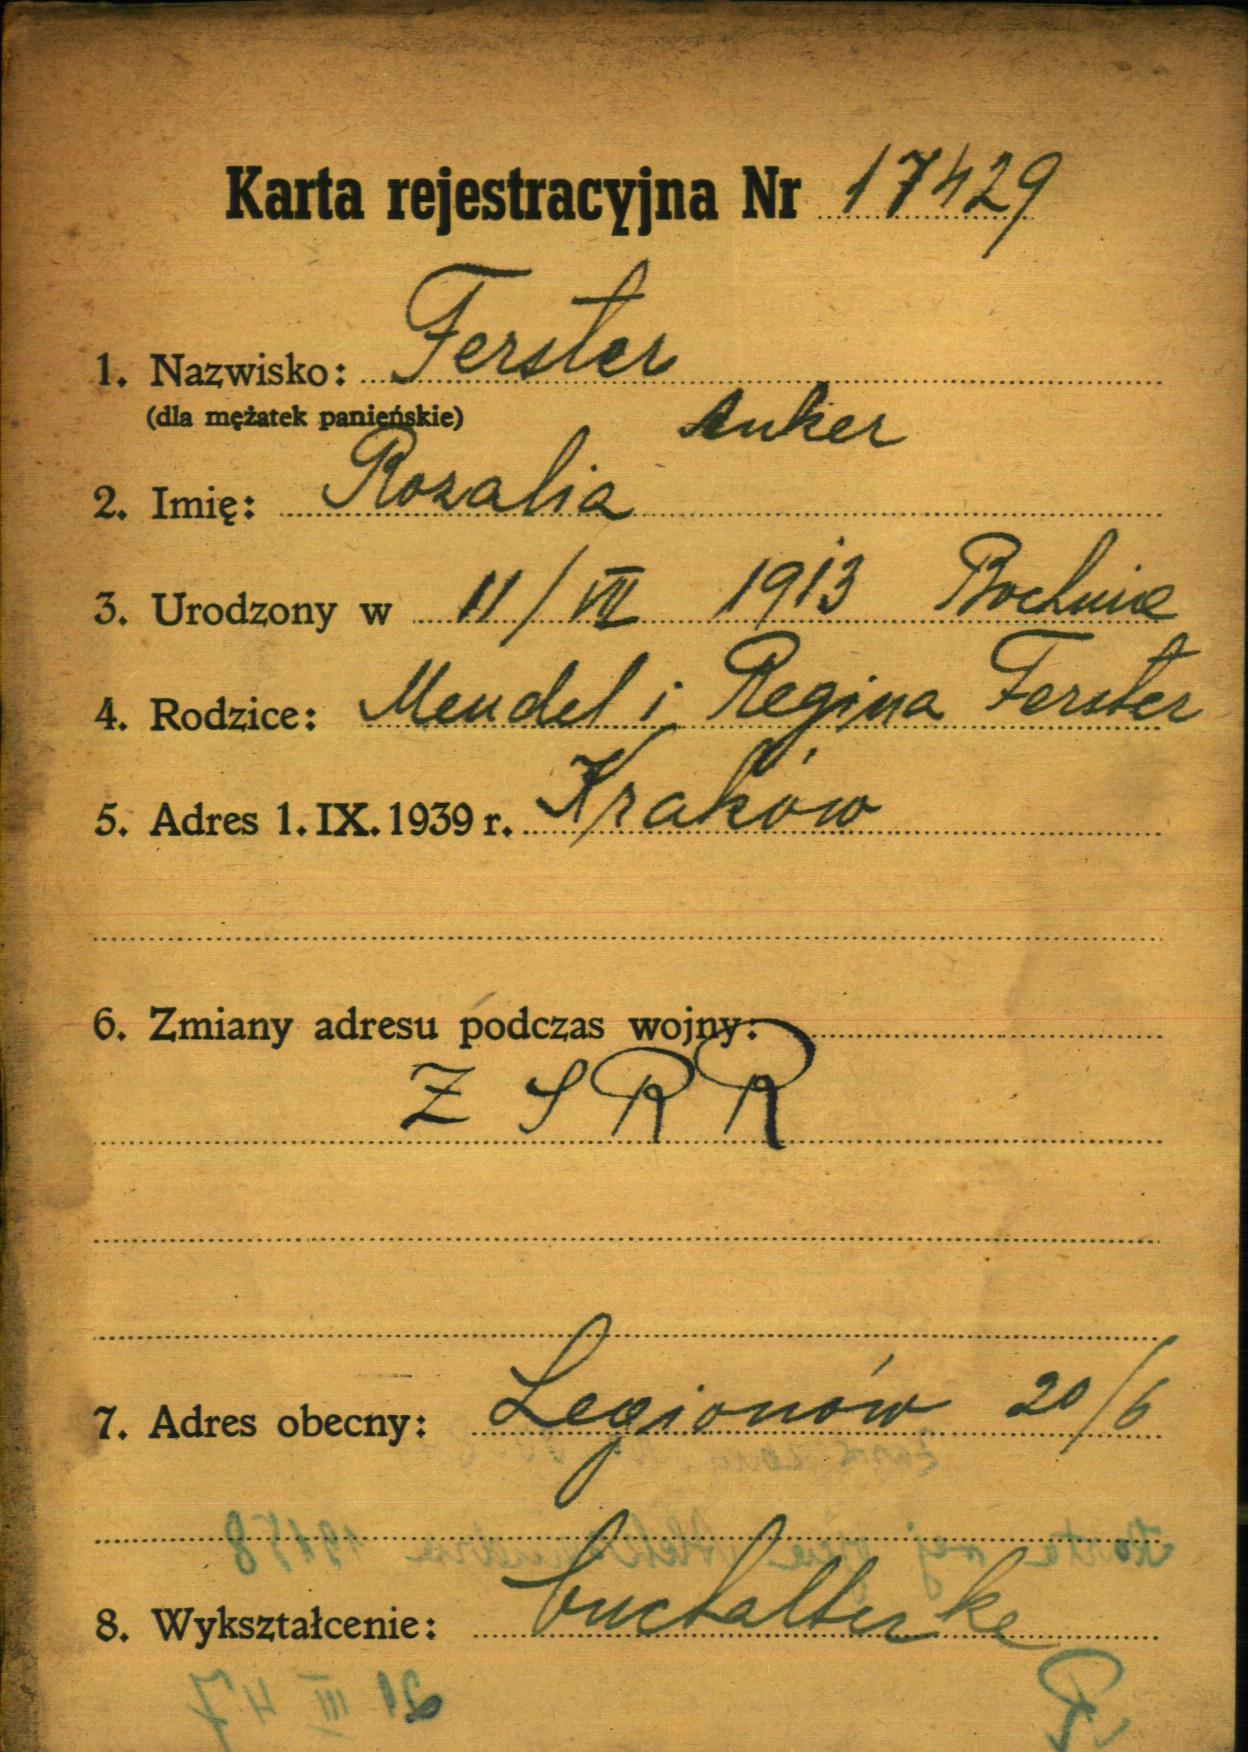 Karta rejestracyjna Nr 17429
1. Nazwisko: Ferster
(dla mężatek panieńskie) Anker
2. Imię: Rozalia
3. Urodzony w 11/VII 1913 Bochnia
4. Rodzice: Mendel i Regina Ferster
5. Adres 1. IX. 1939 r. Kraków
6. Zmiany adresu podczas wojny:
Z S R R
7. Adres obecny: Legionów 20/6
8. Wykształcenie: buchalterka
21 III 47